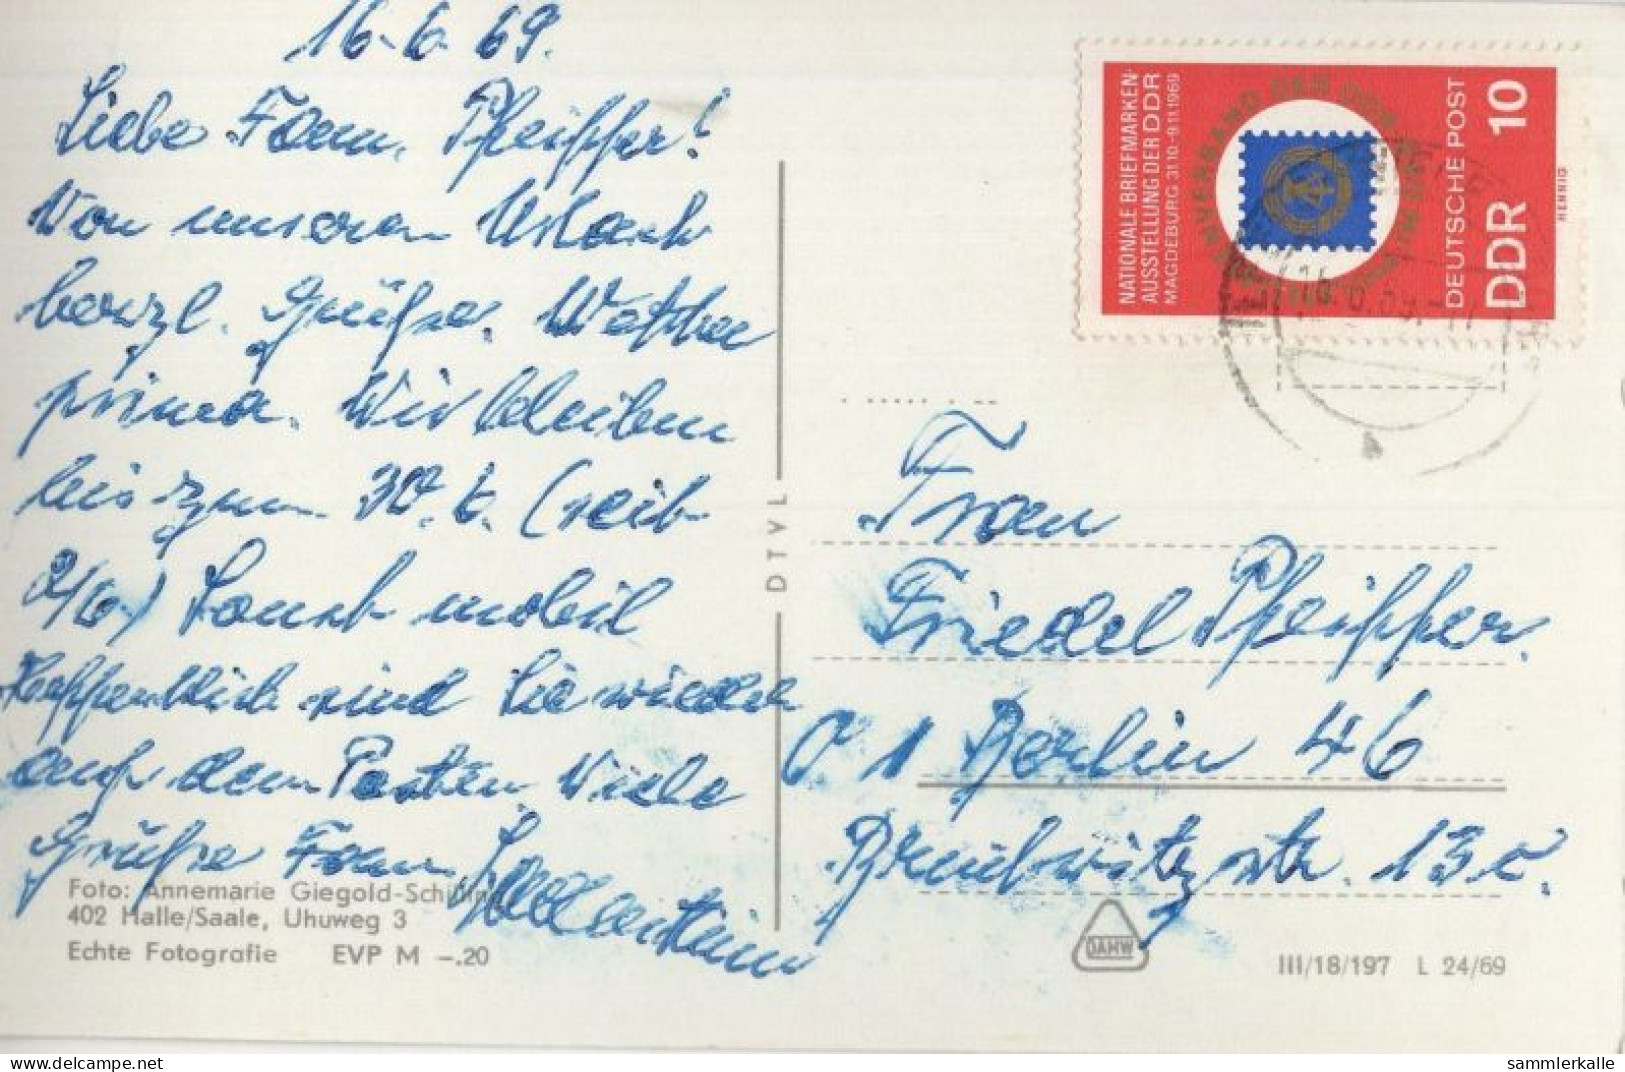 16.6.69.
Liebe Fam. Pfeiffer!
Von unserem Urlaub
herzl. Grüße. Wetter
prima. Wir bleiben
bis zum 30.6. (seit
2/6.) Sonst mobil
Hoffentlich sind Sie wieder
auf dem Posten. Viele
Grüße Fam.
Foto: Annemarie Giegold-Schilling
402 Halle/Saale, Uhuweg 3
Echte Fotografie EVP M -.20
DTVL
NATIONALE BRIEFMARKEN-
AUSSTELLUNG DER DDR
MAGDEBURG 31.10.-9.11.1969
DEUTSCHE POST
DDR 10
HENNIG
Frau
Friedel Pfeiffer.
1 Berlin 46
13 c.
DAHW
III/18/197 L 24/69
© Delcampe.net
sammlerkalle